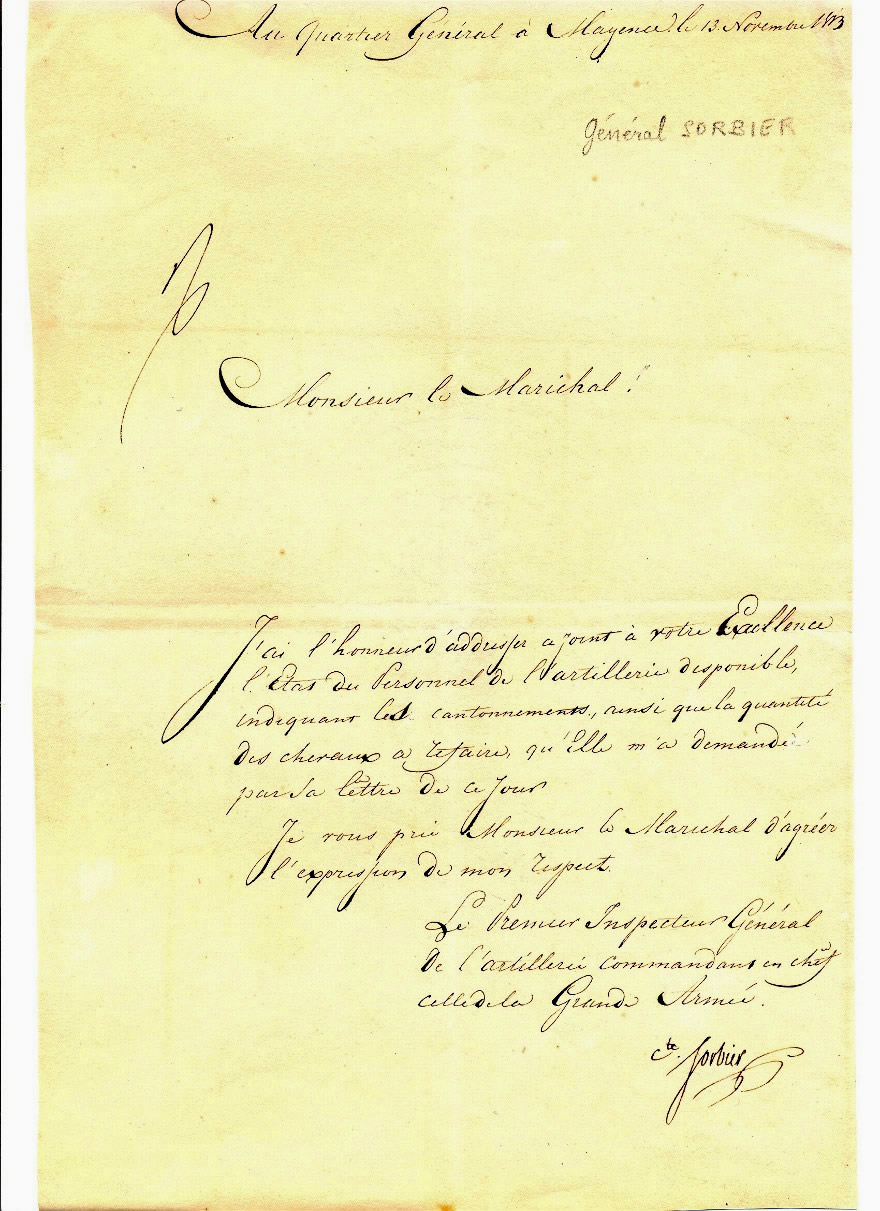 Au Quartier Général à Mayence le 13 Novembre 1813
Général SORBIER
Monsieur le Maréchal !
J'ai l'honneur d'addresser ajoint à votre Excellence
l'Etat du Personnel de l'artillerie disponible,
indiquant les cantonnements, ainsi que la quantité
des chevaux a refaire, qu'Elle m'a demandée
par sa lettre de ce jour
Je vous prie Monsieur le Maréchal d'agréer
l'expression de mon respect.
Le Premier Inspecteur Général
de l'artillerie commandant en chef
celle de la Grande Armée.
Cte. Sorbier